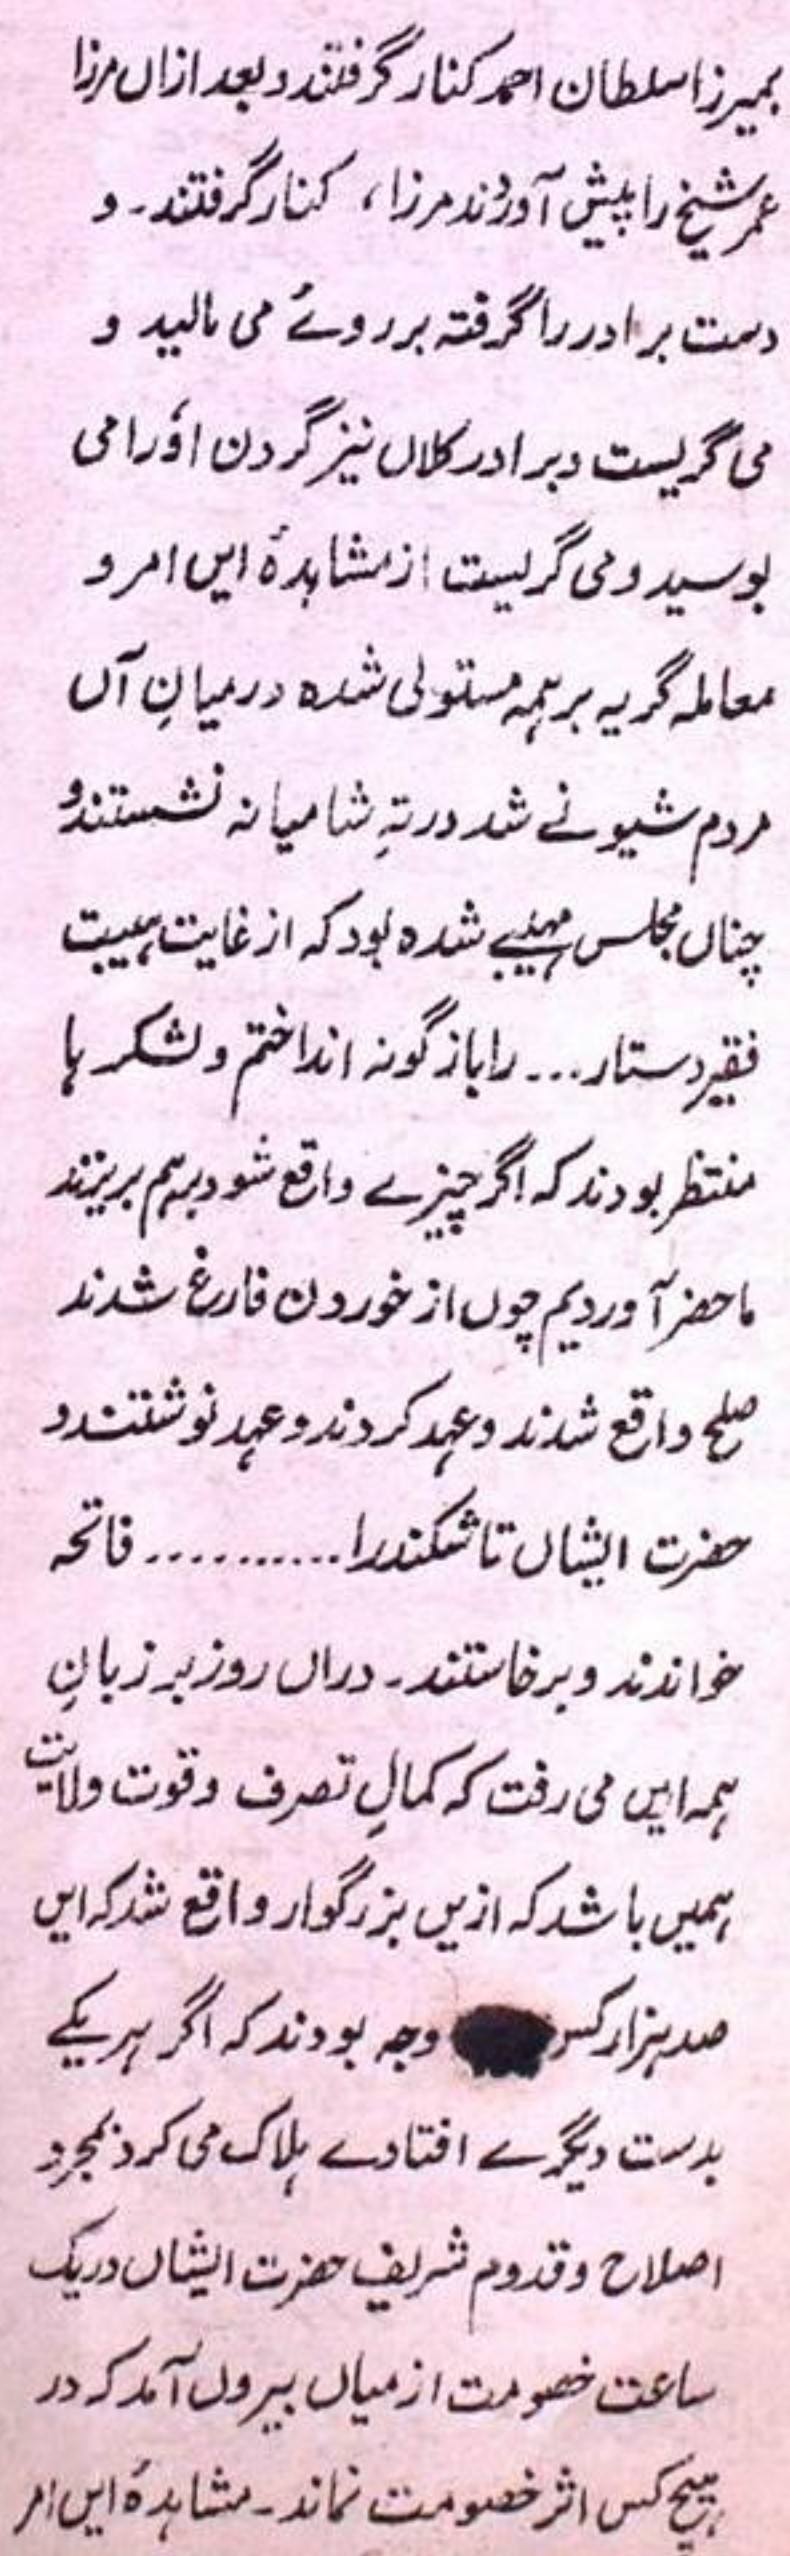 بمیرزا سلطان احمد کنار گرفتند و بعد ازاں مرزا
عمر شیخ را پیش آوردند مرزا، کنار گرفتند۔ و
دست برادر را گرفته بر روئے می مالید و
می گریست و برادر کلاں نیز گردن اُو را می
بوسید و می گریست از مشاہدۂ ایں امر و
معاملہ گریہ بر ہمہ مستولی شدہ درمیانِ آں
مردم شیونے شد در تہِ شامیانہ نشستند و
چناں مجلس مہیبے شدہ بود کہ از غایت ہیبت
فقیر دستار... را باز گونہ انداختم و لشکر ہا
منتظر بودند کہ اگر چیزے واقع شود بہم بریزند
ماحضر آوردیم چوں از خوردن فارغ شدند
صلح واقع شدند و عہد کردند و عہد نوشتند و
حضرت ایشاں تاشکند را .......... فاتحہ
خواندند و برخاستند۔ دراں روز بر زبانِ
ہمہ ایں می رفت کہ کمالِ تصرف و قوت ولایت
ہمیں باشد کہ ازیں بزرگوار واقع شد کہ ایں
صد ہزار کس وجہ بودند کہ اگر ہر یکے
بدست دیگرے افتادے ہلاک می کرد بمجرد
اصلاح و قدوم شریف حضرت ایشاں در یک
ساعت خصومت از میاں بیروں آمد کہ در
ہیچ کس اثر خصومت نماند۔ مشاہدۂ ایں امر